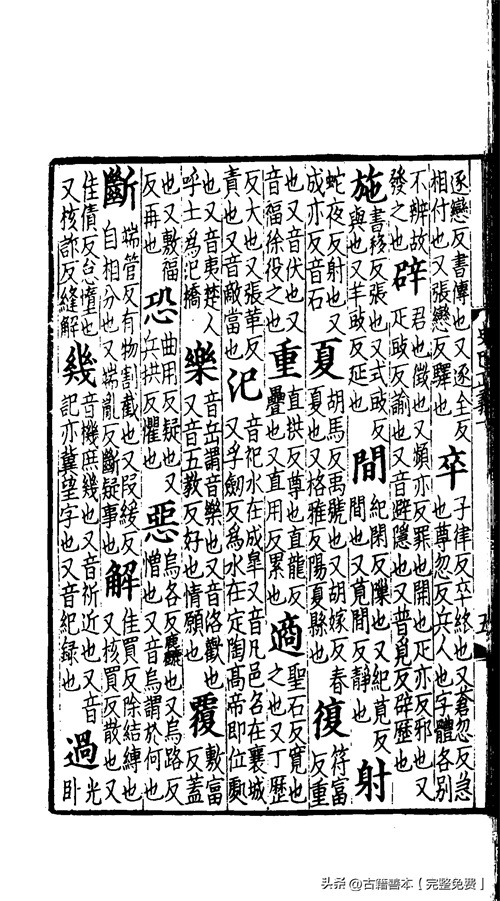 逐戀反書傳也又逐全反
相付也又張戀反驛也
卒
子律反卒終也又蒼忽反急
也尊忽反兵人也字體各別
不辨故
發之也
辟
君也徵也又頻亦反罪也開也疋亦反邪也又
疋豉反諭也又音避隱也又普覓反辟歷也
施
書移反張也又式豉反
與也又羊豉反延也
間
紀閑反隟也又紀莧反
間也又莧間反靜也
射
蛇夜反射也又
成亦反音石
夏
胡馬反禹號也又胡嫁反春
夏也又格雅反陽夏縣也
復
符富
反重
也又音伏也又
音福徐役之也
重
直拱反尊也直龍反
疊也又直用反累也
適
聖石反寬也
之也又丁歷
反大也又張革反
責也又音敵當也
汜
音祀水在成皋又音凡邑名在襄城
又孚劒反為水在定陶高帝即位處
也又音夷楚人
呼土為汜橋
樂
音岳謂音樂也又音洛歡也
又音五教反好也情願也
覆
敷富
反蓋
也又敷福
反再也
恐
曲用反疑也又
丘拱反懼也
惡
烏各反麁也又烏路反
憎也又音烏謂於何也
斷
端管反有物割截也又段緩反
自相分也又端亂反斷疑事也
解
佳買反除結縛也
又核買反散也又
佳債反怠墮也
又核詐反縫解
幾
音機庶幾也又音祈近也又音
記亦冀望字也又音紀録也
過
光
卧
头条 @古籍善本【完整免费】